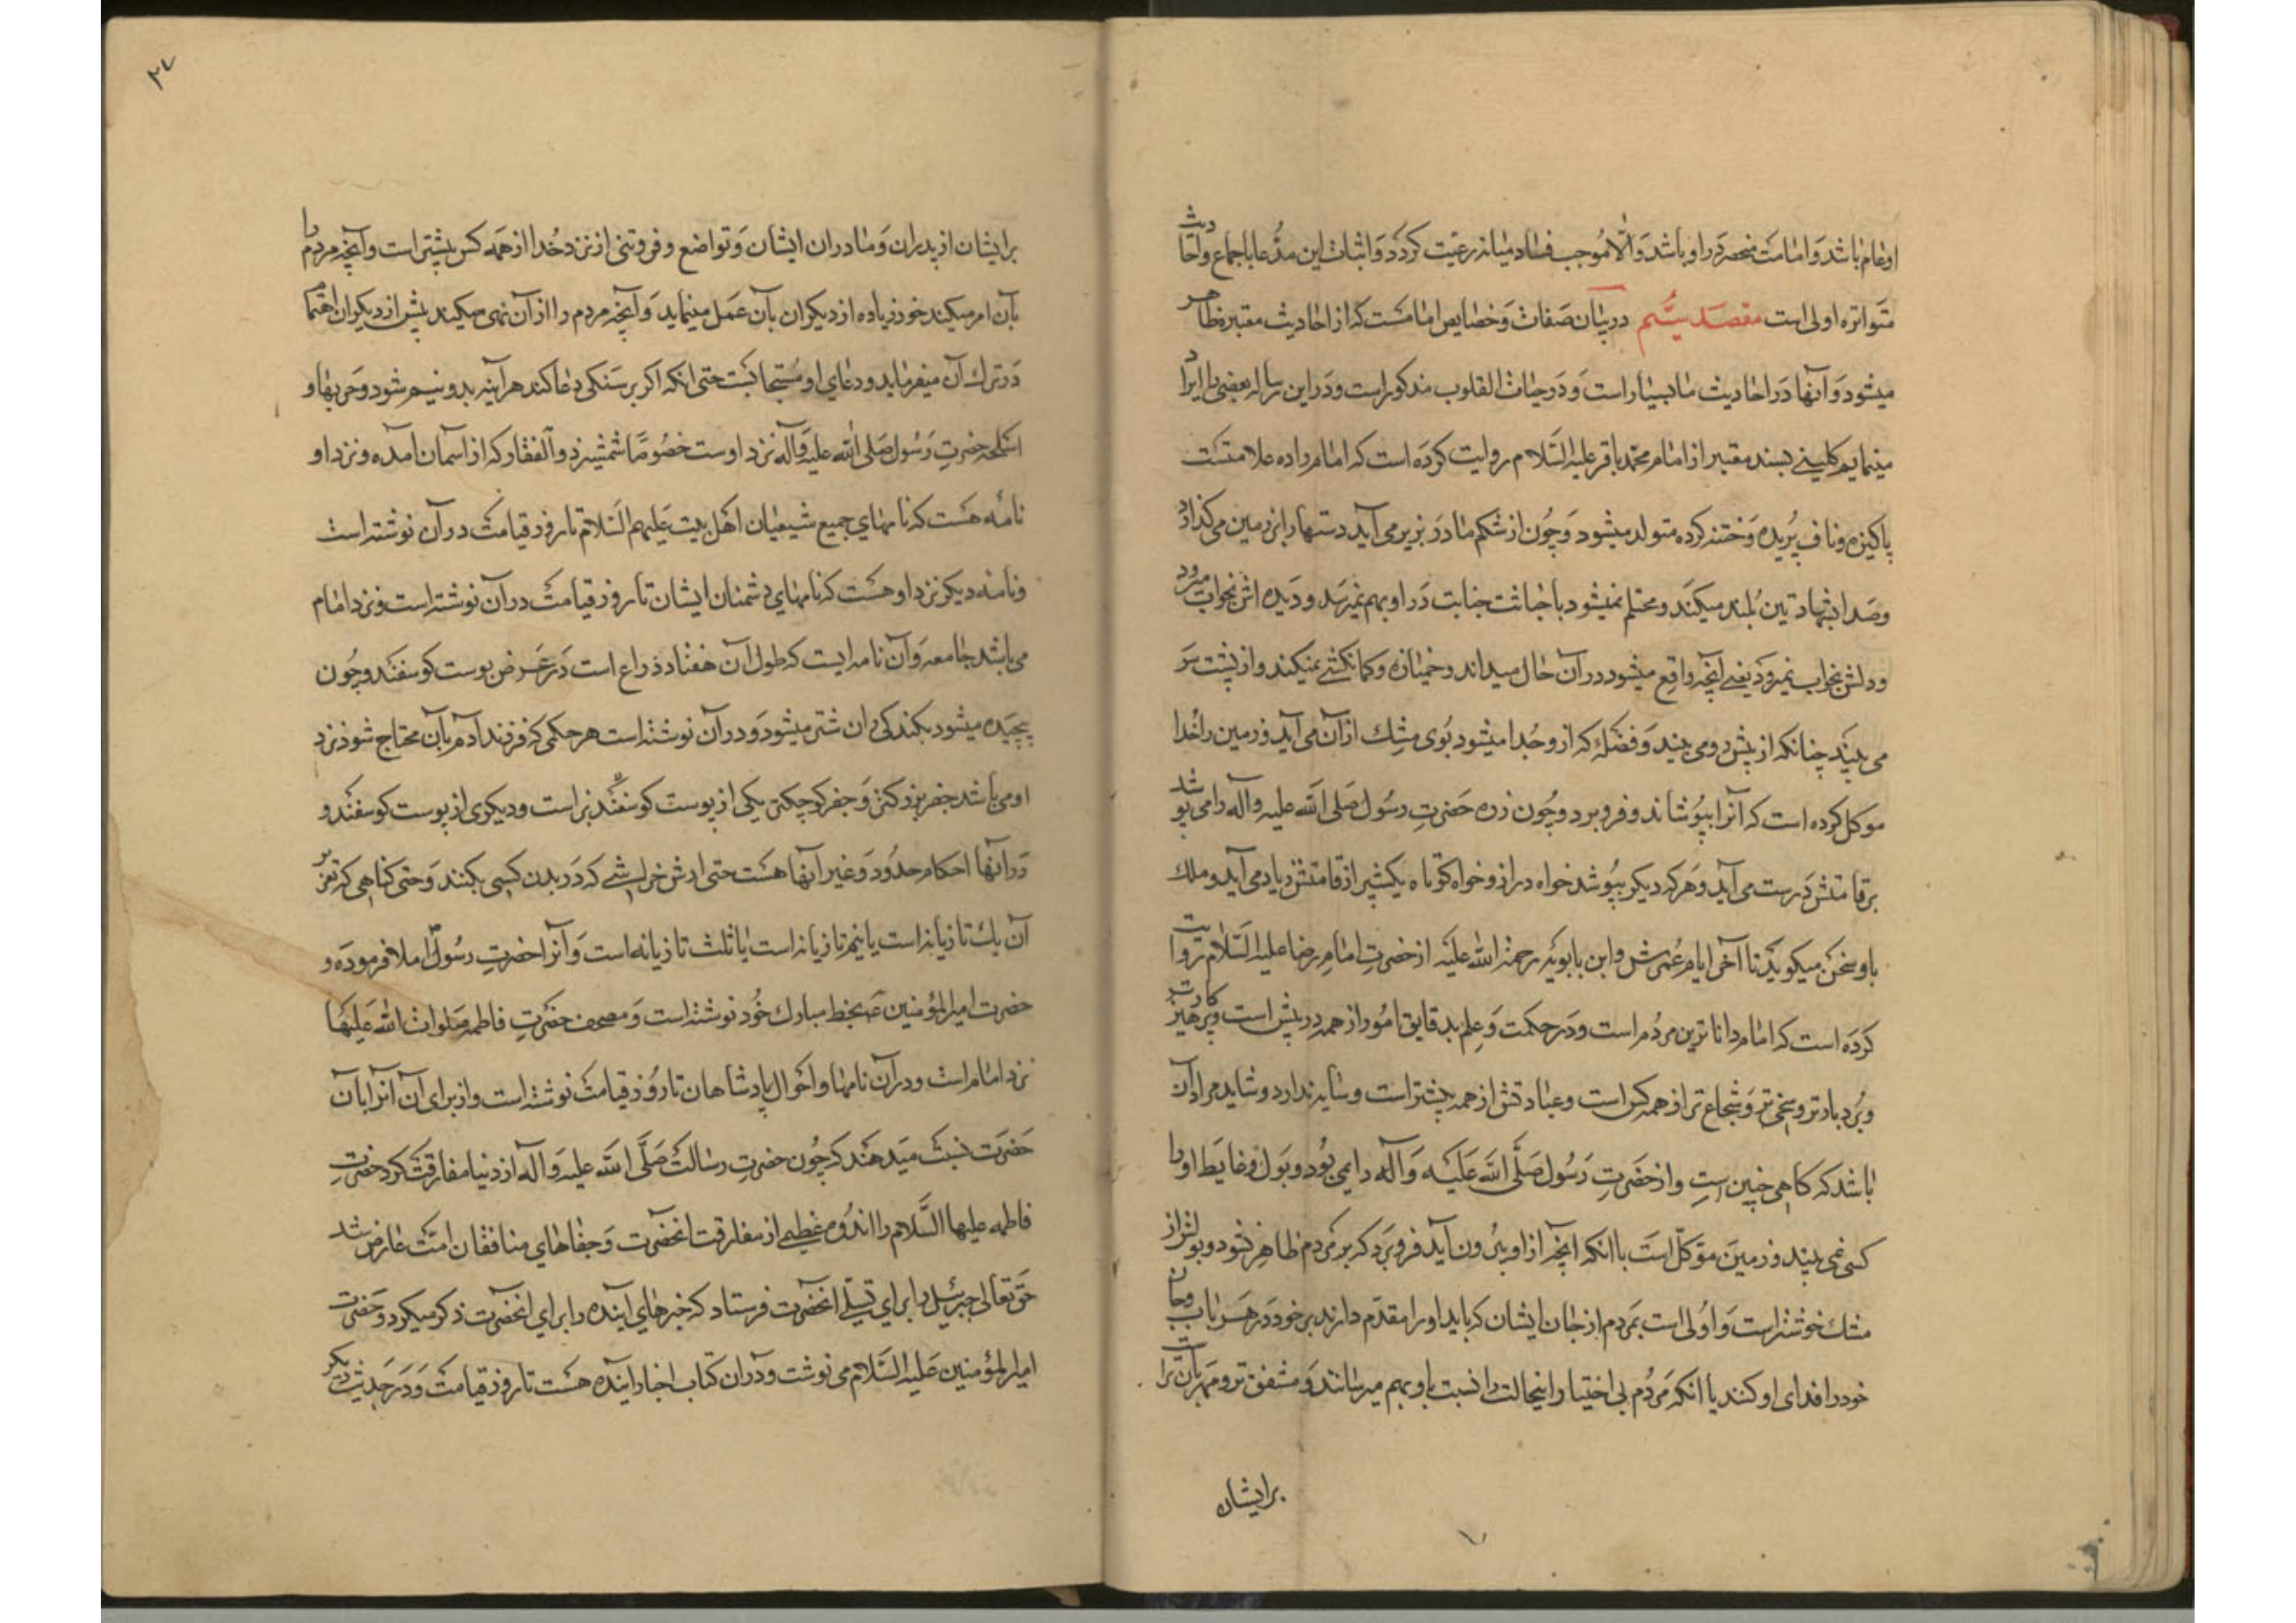 او عام باشد و امامت منحصر در او باشد و الّا موجب فساد میانه رعیّت کردد و اثبات این مدّعا باجماع و احادیث
متواتره اولی است مقصد سیُّم در بیان صفات و خصایص امامست که از احادیث معتبره ظاهر
میشود و آنها در احادیث ما بسیار است و در حیات القلوب مذکور است و در این رساله بعضی را ایراد
مینمایم کلینی بسند معتبر از امام محمّد باقر علیه السّلام روایت کرده است که امام را ده علامتست
پاکیزه و ناف بُریده و ختنه کرده متولد میشود و چون از شکم مادر بزیر می آید دستها را بر زمین می کذارد
و صدا بشهادتین بُلند میکند و محتلم نمیشود با خباثت جنابت در او بهم نمیرسد و دیده اش بخواب میرود
و دلش بخواب نمیرود یعنی آنچه واقع میشود در آن حال میداند و خمیازه و کمانکشی نمیکند و از پشت سر
می بیند چنانکه از پیش رو می بیند و فضله که از و جُدا میشود بوی مشک از آن می آید و زمین را خُدا
موکل کرده است که آنرا بپوشاند و فرو برد و چون زره حضرتِ رسُول صَلی الله علیه و آله را می پوشد
بر قامتش درست می آید و هر که دیکر بپوشد خواه دراز و خواه کوتاه یکشبر از قامتش زیاد می آید و ملک
با و سخن میکوید تا آخر ایام عُمرش و ابن بابویه رحمة الله علیه از حضرتِ امامِ رضا علیه السّلام روایت
کرده است که امام داناترین مردُم است و در حکمت و عِلم بدقایق امُور از همه در پیش است و پرهیزکارتر
و بُردبارتر و سخی تر و شجاع تر از همه کس است و عبادتش از همه بیشتر است و سایه ندارد و شاید مراد آن
باشد که کاهی چنین است و از حضرتِ رَسُول صَلَّی اللّه عَلیَه وَ آله را می بُود و بول و غایط او را
کسی نمی بیند و زمین موَکّل است با آنکه آنچه از او بیرُون آید فرو برد که بر مَردم ظاهر نشود و بویش از
مشک خوشتر است و اولی است بمردم از جان ایشان که باید او را مقدّم دارند بر خود در هر باب و جان
خود را فدای او کنند یا آنکه مَردُم بی اختیار اینحالت را نسبت باو بهم میرسانند و مشفق تر و مهربان تر است
بر ایشان
۳۷
بر ایشان از پدران و مادران ایشان و تواضع و فروتنی از نزد خُدا از همه کس بیشتر است و آنچه مردم را
بآن امر میکند خود زیاده از دیکران بآن عمل مینماید و آنچه مردم را از آن نهی میکند پیش از دیکران اهتمام
در ترک آن میفرماید و دعای او مُستجابست حتی آنکه اکر بر سَنکی دعا کند هر آینه بدو نیم شود و حربها و
اسلحه حضرتِ رَسُول صَلی الله علیه وَ آله نزد اوست خصُوصًا شمشیر ذو الفقار که از آسمان آمده و نزد او
نامه هست که نامهای جمیع شیعیان اهل بیت علیهم السّلام تا روز قیامت در آن نوشته است
و نامه دیکر نزد او هست که نامهای دشمنان ایشان تا روز قیامت در آن نوشته است و نزد امام
می باشد جامعه و آن نامه ایست که طول آن هفتاد ذراع است در عرض پوست کوسفند و چون
پیچیده میشود بکند کی ران شتر میشود و در آن نوشته است هر حکمی که فرزند آدم بآن محتاج شود نزد
او می باشد جفر بزرکتر و جفر کوچکتر یکی از پوست کوسفند بز است و دیکری از پوست کوسفند و
در آنها احکام حدُود و غیر آنها هست حتی ارش خراشی که در بدن کسی بکنند و حتی کناهی که تعزیر
آن یک تازیانه است یا نیم تازیانه است یا ثلث تازیانه است و آنرا حضرتِ رسُول املا فرموده و
حضرت امیر المؤمنین ع بخط مبارک خُود نوشته است و مصحف حضرتِ فاطمه صَلوات اللّه عَلیهَا
نزد امام است و در آن نامها و احوال پادشاهان تا روز قیامت نوشته است و از برای آن آنرا بآن
حَضرت نسبت میدهند که چون حضرتِ رسالت صَلَّی اللّه علیه وَ آله از دنیا مفارقت کرد حضرتِ
فاطمه علیها السَّلام را اندوه عظیمی از مفارقت آنحضرت وَ جفاهای منافقان امّت عارض شد
حق تعالی جبرئیل را برای تسلی آنحضرت فرستاد که خبرهای آینده را برای آنحضرت ذکر میکرد و حضرت
امیر المؤمنین عَلیه السّلام می نوشت و در آن کتاب اخبار آینده هست تا روز قیامت و در حدیث دیکر